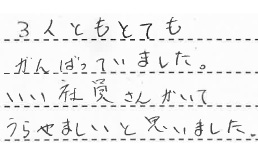 3人ともとても
がんばっていました。
いい社員さんがいて
うらやましいと思いました。